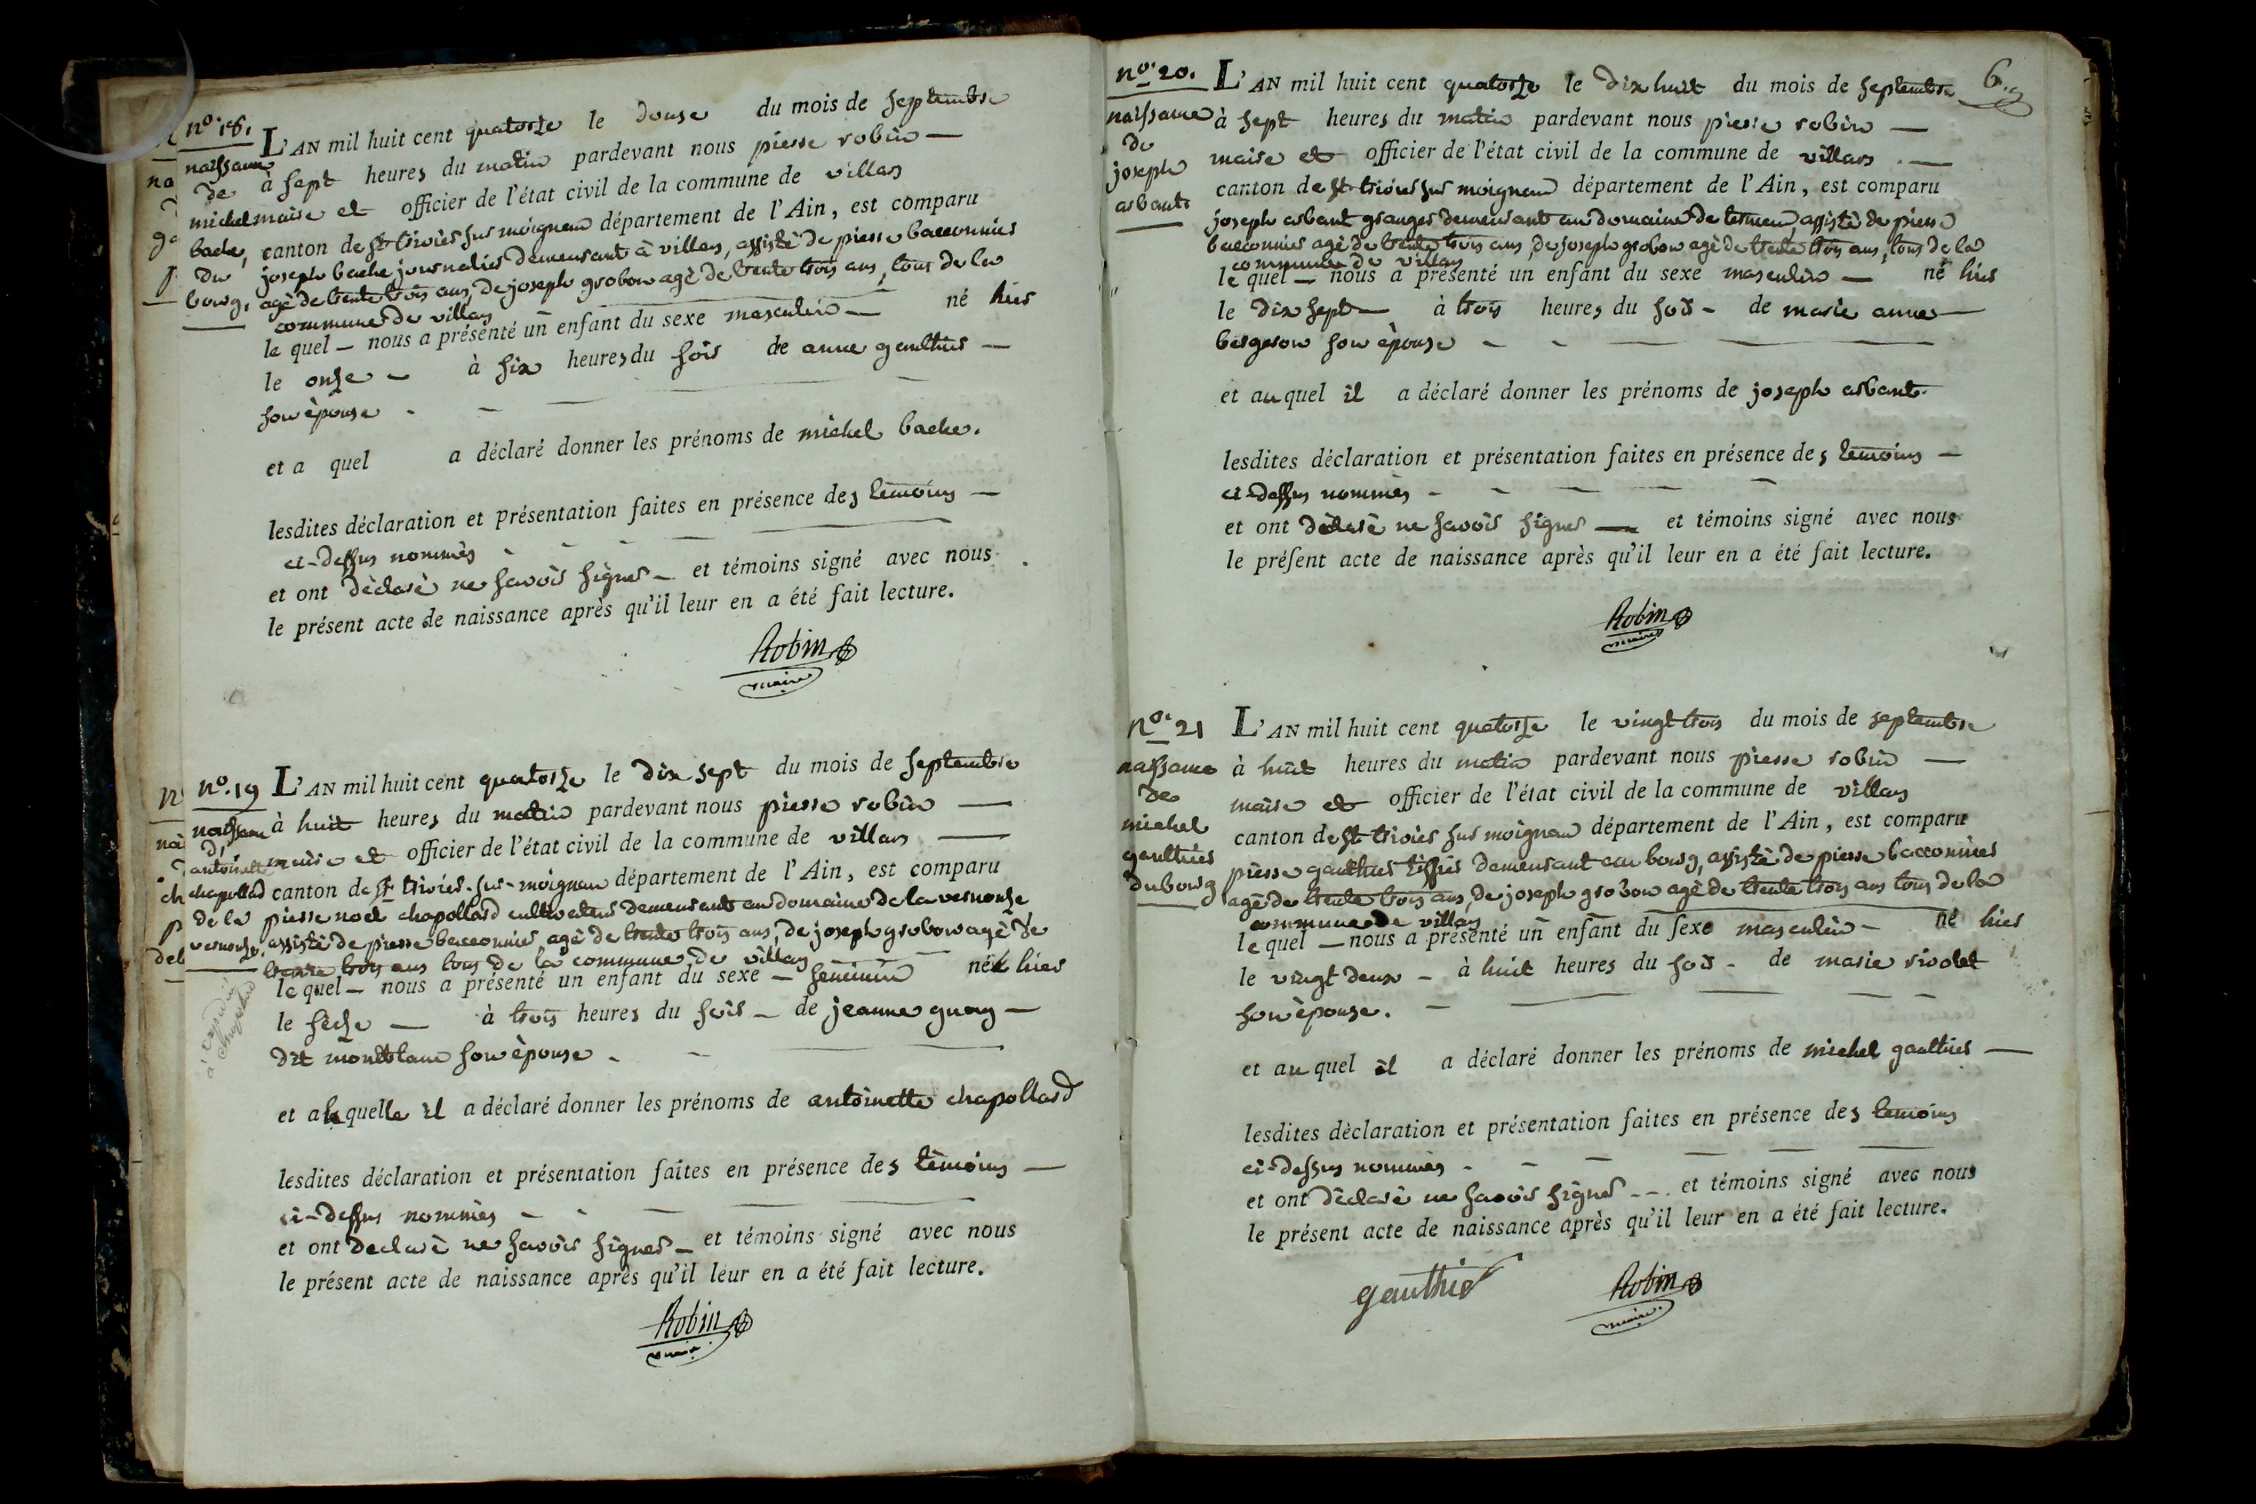 no. 18.
naissance
de
michel
bache,
du
bourg,
L'AN mil huit cent quatorze le douse du mois de septembre
à sept heures du matin pardevant nous pierre robin —
maire et officier de l'état civil de la commune de villars
canton de st trivier sur moignans département de l'Ain, est comparu
joseph bache journalier demeurant à villars, assisté de pierre bacconnier
agè de trente trois ans, de joseph grobon agè de trente trois ans, tous de la
commune de villars
le quel — nous a présenté un enfant du sexe masculin — né hier
le onze — à six heures du soir de anne gauthier —
son èpouse - - —
et a quel a déclaré donner les prénoms de michel bache.
lesdites déclaration et présentation faites en présence des tèmoins —
ci-dessus nommès - - - —
et ont dèclarè ne savoir signer — et témoins signé avec nous
le présent acte de naissance après qu'il leur en a été fait lecture.
Robin
maire
no. 19
naissance
d'
antoinette
chapollard
de la
vernouse,
L'AN mil huit cent quatorze le dix sept du mois de septembre
à huit heures du matin pardevant nous pierre robin —
maire et officier de l'état civil de la commune de villars —
canton de st trivier-sur-moignans département de l'Ain, est comparu
pierre noël chapollard cultivateur demeurant au domaine de la vernouse
assisté de pierre bacconnier agè de trente trois ans, de joseph grobon agè de
trente trois ans tous de la commune de villars
le quel — nous a présenté un enfant du sexe — fèminin née hier
le sèize — à trois heures du soir — de jeanne guay —
dit montblanc son èpouse - - —
et a la quelle il a déclaré donner les prénoms de antoinette chapollard
lesdites déclaration et présentation faites en présence des tèmoins —
ci-dessus nommès - - — —
et ont declarè ne savoir signer — et témoins signé avec nous
le présent acte de naissance après qu'il leur en a été fait lecture.
Robin
maire
6.
no. 20.
naissance
de
joseph
arbant
L'AN mil huit cent quatorze le dix huit du mois de septembre
à sept heures du matin pardevant nous pierre robin —
maire et officier de l'état civil de la commune de villars . —
canton de st trivier sur moignans département de l'Ain, est comparu
joseph arbant granger demeurant au domaine de assistè de pierre
bacconnier agè de trente trois ans, de joseph grobon agè de trente trois ans, tous de la
commune de villars
le quel — nous a présenté un enfant du sexe masculin — né hier
le dix sept — à trois heures du soir - de marie anne —
bergeron son èpouse - - — — —
et au quel il a déclaré donner les prénoms de joseph arbant.
lesdites déclaration et présentation faites en présence des temoins —
ci-dessus nommès - - — — —
et ont dèclarè ne savoir signer — et témoins signé avec nous
le présent acte de naissance après qu'il leur en a été fait lecture.
Robin
maire
no. 21
naissance
de
michel
gauthier
du bourg
L'AN mil huit cent quatorze le vingt trois du mois de septembre
à huit heures du matin pardevant nous pierre robin —
maire et officier de l'état civil de la commune de villars
canton de st trivier sur moignans département de l'Ain, est comparu
pierre gauthier demeurant au bourg, assistè de pierre bacconnier
agè de trente trois ans, de joseph grobon agè de trente trois ans tous de la
commune de villars
le quel — nous a présenté un enfant du sexe masculin — né hier
le vingt deux - à huit heures du soir - de marie rivolet
son èpouse. - — — - -
et au quel il a déclaré donner les prénoms de michel gauthier —
lesdites déclaration et présentation faites en présence des temoins
ci-dessus nommès - - — — — —
et ont dèclarè ne savoir signer - - et témoins signé avec nous
le présent acte de naissance après qu'il leur en a été fait lecture.
gauthier Robin
maire